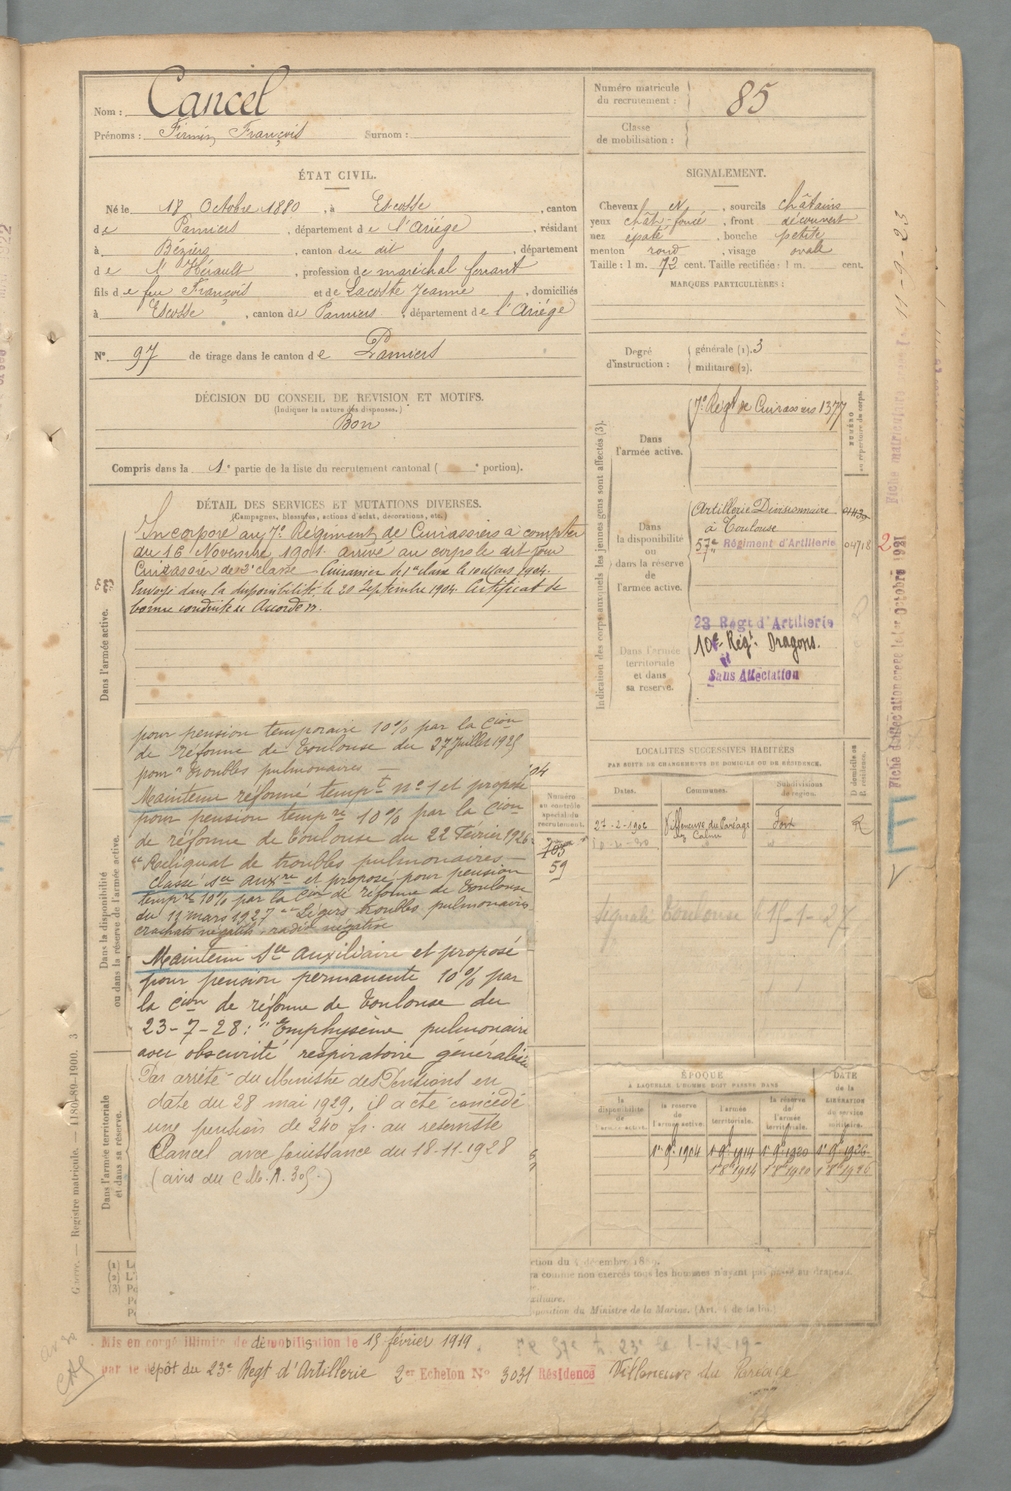 Nom : Cancel
Prénoms : Firmin, François Surnom :
Numéro matricule du recrutement : 85
Classe de mobilisation :
ÉTAT CIVIL.
Né le 18 Octobre 1880, à Escosse, canton
de Pamiers, département de l'Ariège, résidant
à Béziers, canton du dit, département
de l'Hérault, profession de maréchal ferrant
fils de feu François et de Lacoste Jeanne, domiciliés
à Escosse, canton de Pamiers, département de l'Ariège
N° 97 de tirage dans le canton de Pamiers
SIGNALEMENT.
Cheveux N, sourcils châtains
yeux chât-foncé, front découvert
nez épaté, bouche petite
menton rond, visage ovale
Taille : 1 m. 72 cent. Taille rectifiée : 1 m. cent.
MARQUES PARTICULIÈRES :
Degré d'instruction : générale (1). 3
militaire (2).
DÉCISION DU CONSEIL DE REVISION ET MOTIFS.
(Indiquer la nature des dispenses.)
Bon
Compris dans la 1e partie de la liste du recrutement cantonal ( e portion).
DÉTAIL DES SERVICES ET MUTATIONS DIVERSES.
(Campagnes, blessures, actions d'éclat, décorations, etc.)
Incorporé au 7e Régiment de Cuirassiers à compter
du 16 Novembre 1901 arrivé au corps le dit jour
Cuirassier de 2e classe Cuirassier de 1re classe le
Envoyé dans la disponibilité le 20 Septembre 1904. Certificat de
bonne conduite Accordé
Dans l'armée active.
pour pension temporaire 10% par la Cion
de réforme de Toulouse du 27 Juillet 1925
pour " troubles pulmonaires —
Maintenu réformé tempre n° 1 et proposé
pour pension tempre 10% par la Cion
de réforme de Toulouse du 22 Février 1926
"Reliquat de troubles pulmonaires —
Classé sce auxre et proposé pour pension
tempre 10% par la Cion de réforme de Toulouse
du 11 mars 1927 " Légers troubles pulmonaires
crachats négatifs radio négative
Maintenu Sce Auxiliaire et proposé
pour pension permanente 10% par
la Cion de réforme de Toulouse du
23-7-28 : "Emphysème pulmonaire
avec obscurité respiratoire généralisée
Par arrêté du Ministre des Pensions en
date du 28 mai 1929, il a été concédé
une pension de 240 fs. au
Cancel avec jouissance du 18-11-1928
(avis du C.M.R. 305.)
Dans la disponibilité ou dans la réserve de l'armée active.
Dans l'armée territoriale et dans sa réserve.
Indication des corps auxquels les jeunes gens sont affectés (3).
NUMÉRO au répertoire du corps.
Dans l'armée active.
7e Régt de Cuirassiers 1377
Dans la disponibilité ou dans la réserve de l'armée active.
Artillerie Divisionnaire
à Toulouse
57e Régiment d'Artillerie 04718
Dans l'armée territoriale et dans sa réserve.
23 Régt d'Artillerie
10e Régt Dragons.
Sans Affectation
LOCALITÉS SUCCESSIVES HABITÉES
PAR SUITE DE CHANGEMENTS DE DOMICILE OU DE RÉSIDENCE.
D domicile ou R résidence.
Dates. Communes. Subdivisions de région.
27-2-1906 Villeneuve du Paréage Foix R
Signalé Toulouse
Numéro au contrôle spécial du recrutement.
59
ÉPOQUE
À LAQUELLE L'HOMME DOIT PASSER DANS
la disponibilité de l'armée active. la réserve de l'armée active. l'armée territoriale. la réserve de l'armée territoriale.
DATE de la LIBÉRATION du service militaire.
1er 9bre 1904 1er 9bre 1914 1er 9bre 1920 1er 9bre 1926
Guerre. — Registre matricule. — 1180-89-1900. 3
Fiche d'affectation créée le 1er Octobre 1921
11-9-23
Mis en congé illimité de démobilisation le 15 février 1919
par le dépôt du 23e Regt d'Artillerie 2er Echelon N° 3031 Résidence Villeneuve du Paréage